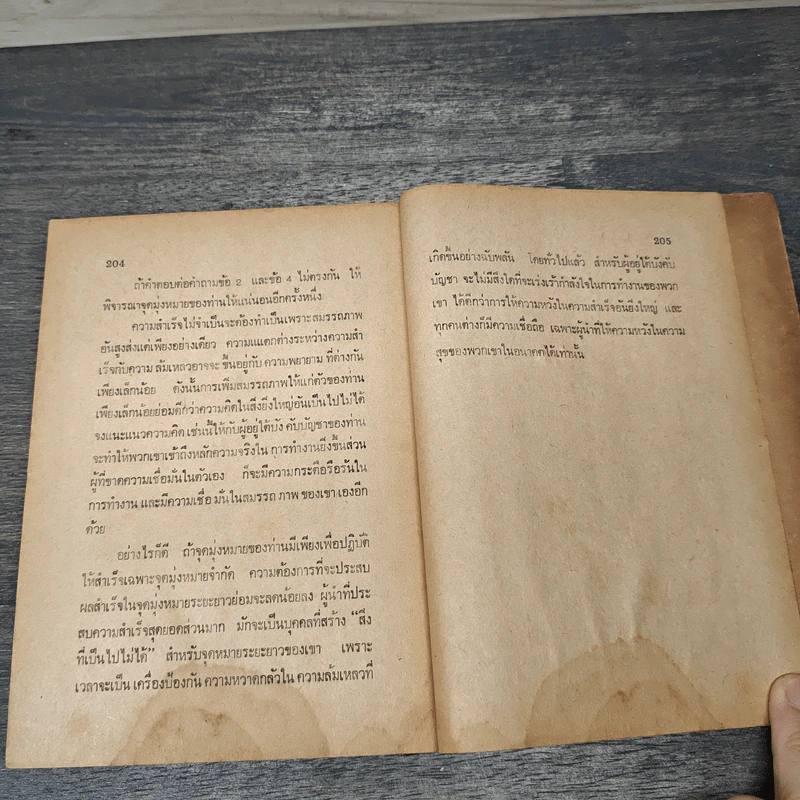 204
ถ้าคำตอบต่อคำถามข้อ 2 และข้อ 4 ไม่ตรงกัน ให้
พิจารณาจุดมุ่งหมายของท่านให้แน่นอนอีกครั้งหนึ่ง
ความสำเร็จไม่จำเป็นจะต้องทำเป็นเพราะสมรรถภาพ
อันสูงส่งแต่เพียงอย่างเดียว ความแแตกต่างระหว่างความสำ
เร็จกับความ ล้มเหลวอาจจะ ขึ้นอยู่กับ ความพยายาม ที่ต่างกัน
เพียงเล็กน้อย ดังนั้นการเพิ่มสมรรถภาพให้แก่ตัวของท่าน
เพียงเล็กน้อยย่อมดีกว่าความคิดในสิ่งยิ่งใหญ่อันเป็นไปไม่ได้
จงแนะแนวความคิด เช่นนี้ให้กับผู้อยู่ใต้บัง คับบัญชาของท่าน
จะทำให้พวกเขาเข้าถึงหลักความจริงใน การทำงานยิ่งขึ้นส่วน
ผู้ที่ขาดความเชื่อมั่นในตัวเอง ก็จะมีความกระตือรือร้นใน
การทำงาน และมีความเชื่อ มั่นในสมรรถ ภาพ ของเขาเองอีก
ด้วย
อย่างไรก็ดี ถ้าจุดมุ่งหมายของท่านมีเพียงเพื่อปฏิบัติ
ให้สำเร็จเฉพาะจุดมุ่งหมายจำกัด ความต้องการที่จะประสบ
ผลสำเร็จในจุดมุ่งหมายระยะยาวย่อมจะลดน้อยลง ผู้นำที่ประ
สบความสำเร็จสุดยอดส่วนมาก มักจะเป็นบุคคลที่สร้าง “สิ่ง
ที่เป็นไปไม่ได้” สำหรับจุดหมายระยะยาวของเขา เพราะ
เวลาจะเป็น เครื่องป้องกัน ความหวาดกลัวใน ความล้มเหลวที่
205
เกิดขึ้นอย่างฉับพลัน โดยทั่วไปแล้ว สำหรับผู้อยู่ใต้บังคับ
บัญชา จะไม่มีสิ่งใดที่จะเร่งเร้ากำลังใจในการทำงานของพวก
เขา ได้ดีกว่าการให้ความหวังในความสำเร็จอันยิ่งใหญ่ และ
ทุกคนต่างก็มีความเชื่อถือ เฉพาะผู้นำที่ให้ความหวังในความ
สุขของพวกเขาในอนาคตได้เท่านั้น